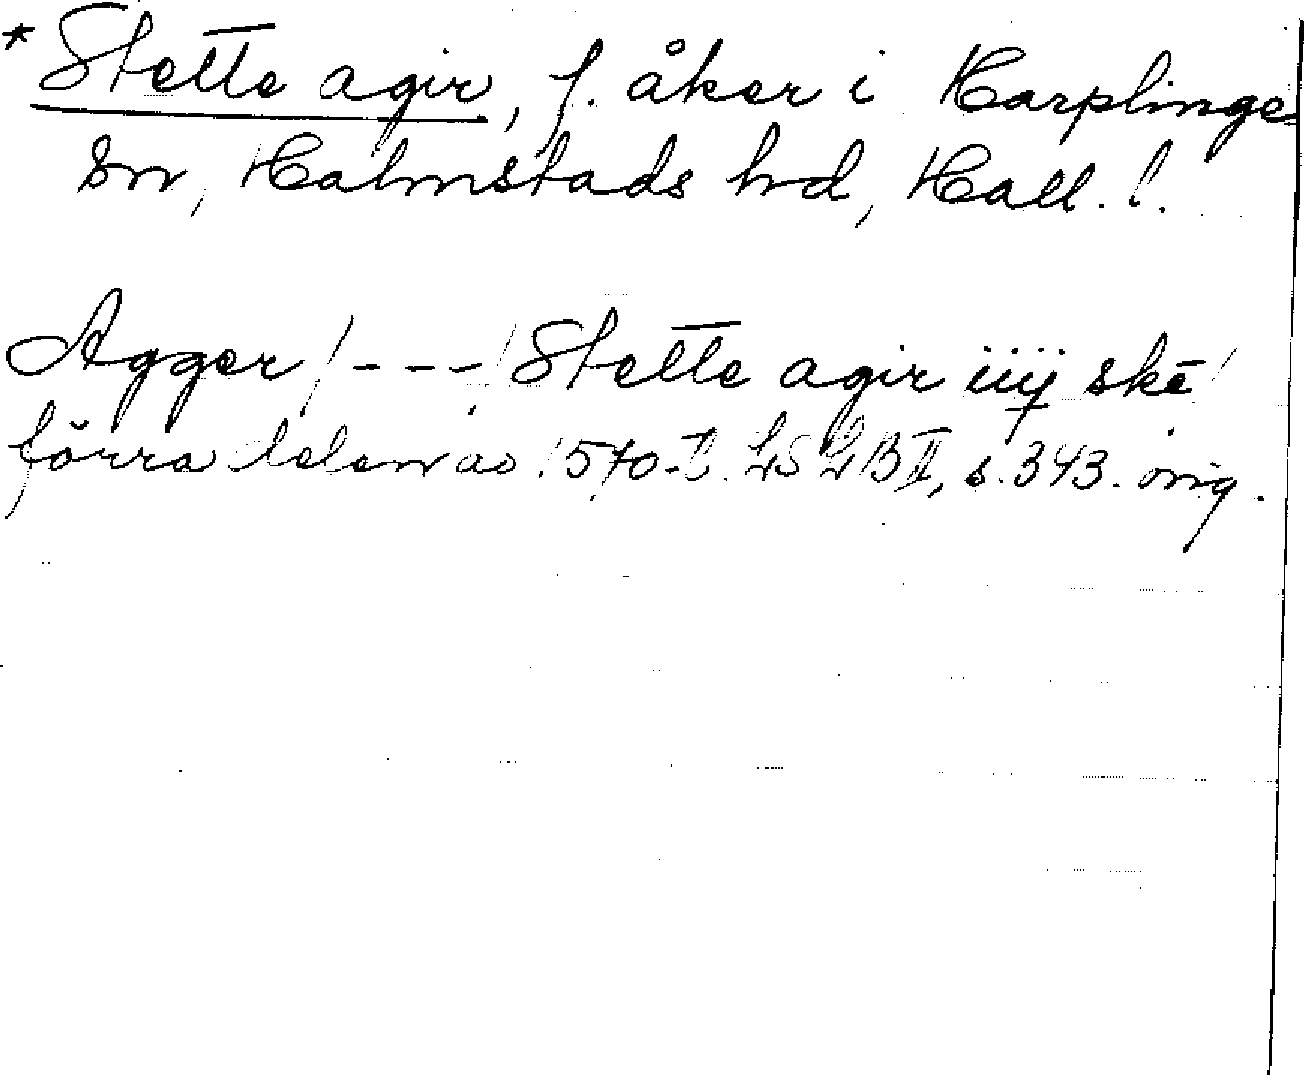 * Stette agir, f. åker i Harplinge
sn, Halmstads hd, Hall. l.
Agger / - - - / Stette agir iiij skē /
förra delen av 1570-t. LSLB II, s. 343. orig.